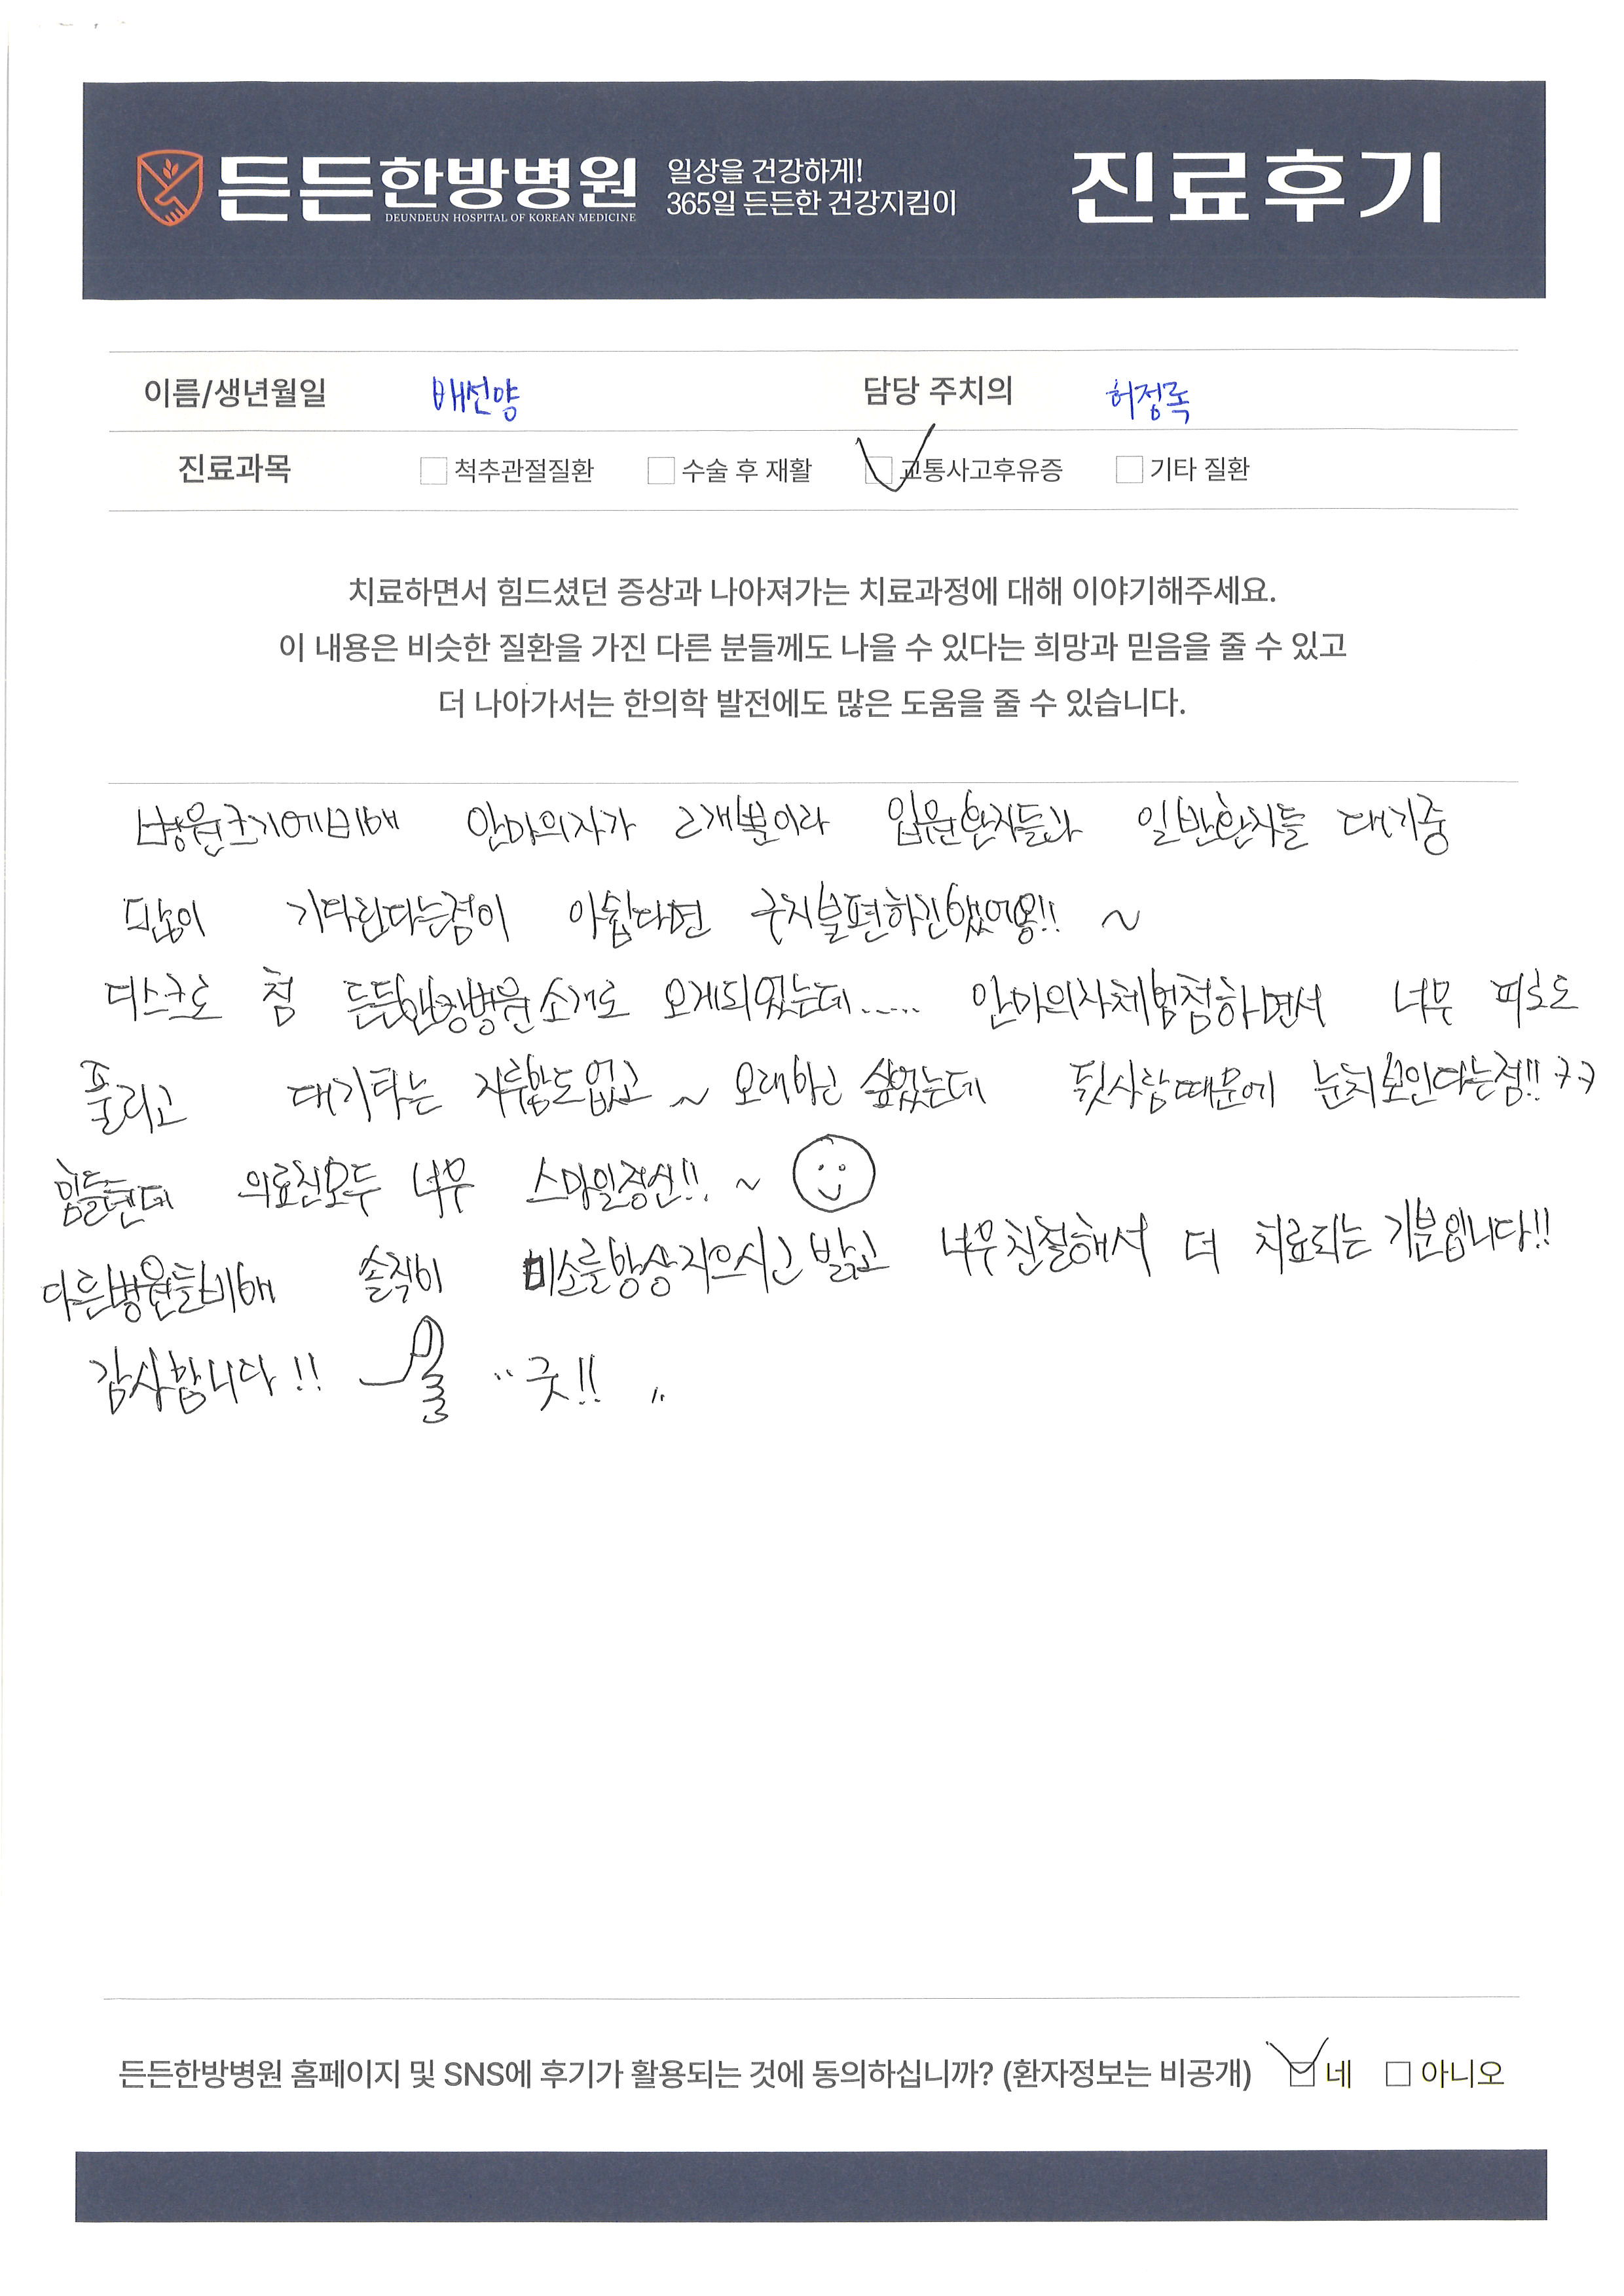 든든한방병원
DEUNDEUN HOSPITAL OF KOREAN MEDICINE
일상을 건강하게!
365일 든든한 건강지킴이
진료후기
이름/생년월일 배선양 담당 주치의 허정록
진료과목 척추관절질환 수술 후 재활 교통사고후유증 기타 질환
치료하면서 힘드셨던 증상과 나아져가는 치료과정에 대해 이야기해주세요.
이 내용은 비슷한 질환을 가진 다른 분들께도 나을 수 있다는 희망과 믿음을 줄 수 있고
더 나아가서는 한의학 발전에도 많은 도움을 줄 수 있습니다.
병원크기에비해 안마의자가 2개뿐이라 입원환자들과 일반환자들 대기중
많이 기다린다는점이 아쉽다면 굿지불편하긴했어용!! ~
디스크로 첨 든든한방병원소개로 오게되었는데..... 안마의자체험점하면서 너무 피로도
풀리고 대기타는 지루함도없고 ~ 오래하고 싶었는데 뒷사람때문에 눈치보인다는점!! ㅋㅋ
힘들텐데 의료진모두 너무 스마일정신!! ~
다른병원들비해 솔직히 미소를항상지으시고 밝고 너무친절해서 더 치료되는 기분입니다!!
감사합니다!! "굿!!"
든든한방병원 홈페이지 및 SNS에 후기가 활용되는 것에 동의하십니까? (환자정보는 비공개) 네 아니오